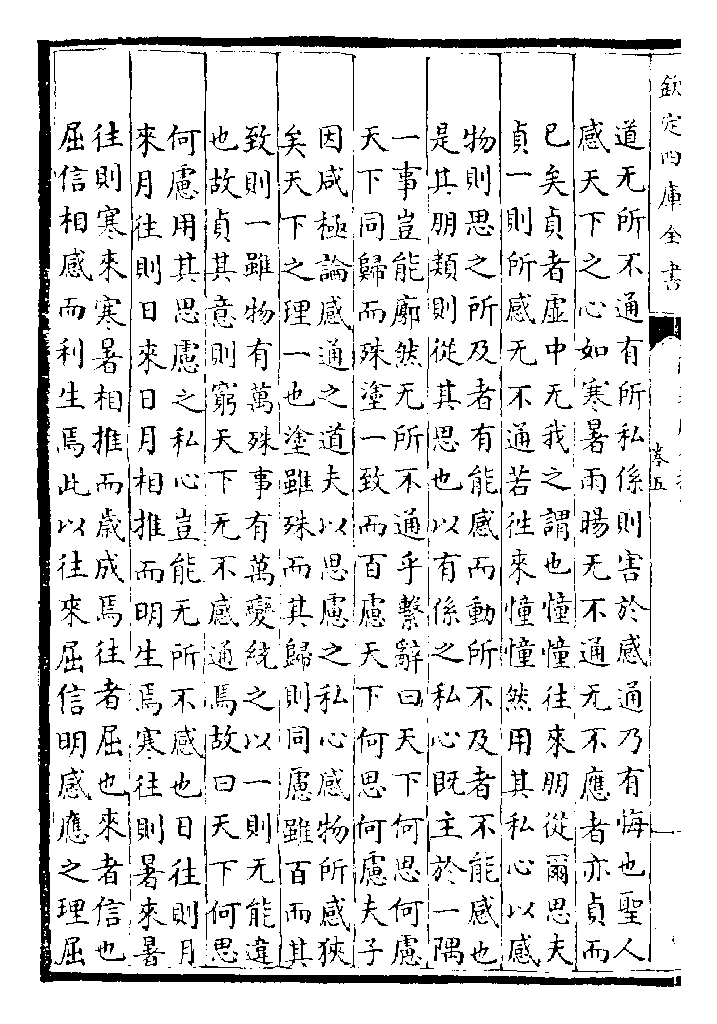 欽定四庫全書
卷五
道无所不通有所私係則害於感通乃有悔也聖人
感天下之心如寒暑雨暘无不通无不應者亦貞而
已矣貞者虛中无我之謂也憧憧往來朋從爾思夫
貞一則所感无不通若徃來憧憧然用其私心以感
物則思之所及者有能感而動所不及者不能感也
是其朋類則從其思也以有係之私心既主於一隅
一事豈能廓然无所不通乎繫辭曰天下何思何慮
天下同歸而殊塗一致而百慮天下何思何慮夫子
因咸極論感通之道夫以思慮之私心感物所感狹
矣天下之理一也塗雖殊而其歸則同慮雖百而其
致則一雖物有萬殊事有萬變統之以一則无能違
也故貞其意則窮天下无不感通焉故曰天下何思
何慮用其思慮之私心豈能无所不感也日往則月
來月往則日來日月相推而明生焉寒往則暑來暑
往則寒來寒暑相推而歲成焉往者屈也來者信也
屈信相感而利生焉此以往來屈信明感應之理屈